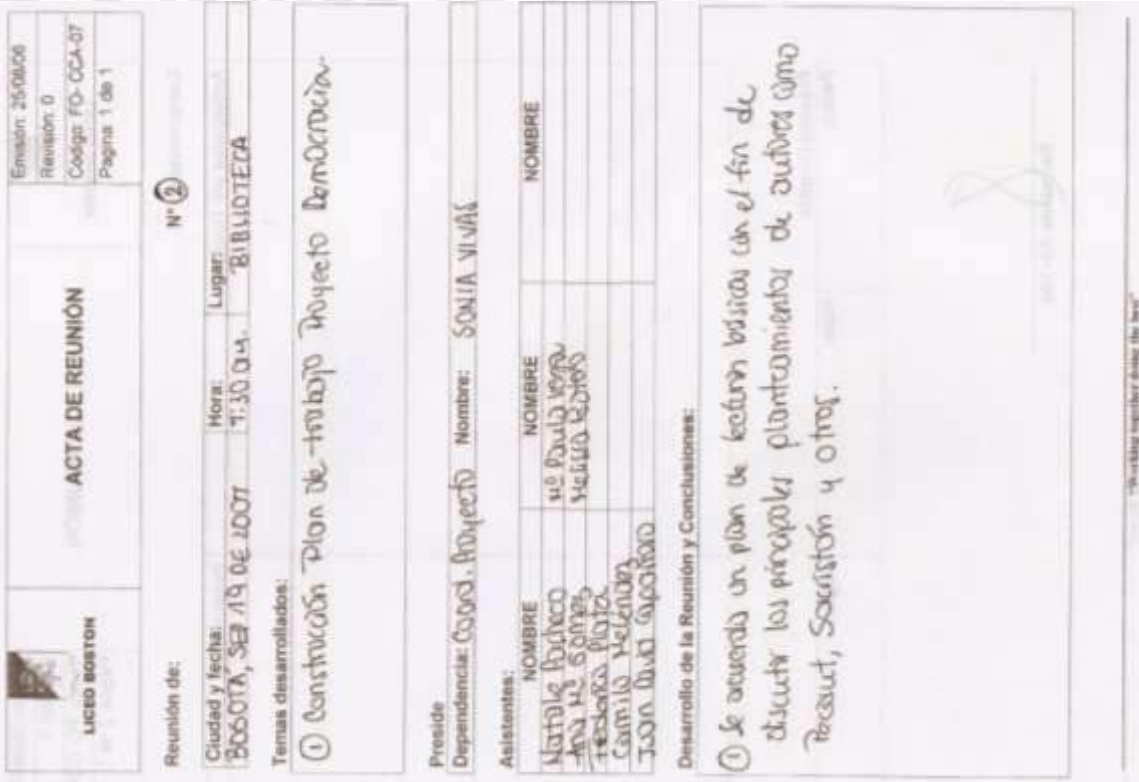 LICEO BOSTON
ACTA DE REUNIÓN
Emisión: 25/08/06
Revisión: 0
Código: FO- CCA-07
Pagina: 1 de 1
Reunión de:
N° 2
Ciudad y fecha: Hora: Lugar:
BOGOTÁ, SEP 19 DE 2007 7:30 am. BIBLIOTECA
Temas desarrollados:
① Construcción Plan de trabajo Proyecto Democracia.
Preside
Dependencia: Coord. Proyecto Nombre: SONIA VIVAS
Asistentes:
NOMBRE NOMBRE NOMBRE
Natalie Pacheco Mª Paula Vega
Ana Mª Gomez
Plata
Camilo Melendez
Juan David
Desarrollo de la Reunión y Conclusiones:
① Se acuerda un plan de lecturas básicas con el fin de
discutir los principales planteamientos de autores como
Pecaut, Sacristón y otros.